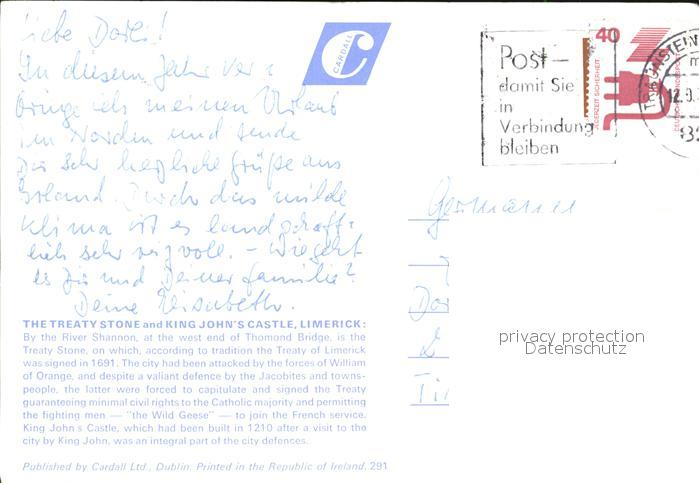 Liebe Dorli!
In diesem Jahr ver=
bringe ich meinen Urlaub
im Norden und sende
Dir sehr herzliche Grüße aus
Irland. Durch das milde
Klima ist es landschaft=
lich sehr reizvoll. – Wie geht
es Dir und Deiner Familie?
Deine Elisabeth.
CARDALL
C
THE TREATY STONE and KING JOHN'S CASTLE, LIMERICK:
By the River Shannon, at the west end of Thomond Bridge, is the
Treaty Stone, on which, according to tradition the Treaty of Limerick
was signed in 1691. The city had been attacked by the forces of William
of Orange, and despite a valiant defence by the Jacobites and towns-
people, the latter were forced to capitulate and signed the Treaty
guaranteeing minimal civil rights to the Catholic majority and permitting
the fighting men — "the Wild Geese" — to join the French service.
King John s Castle, which had been built in 1210 after a visit to the
city by King John, was an integral part of the city defences.
Published by Cardall Ltd., Dublin. Printed in the Republic of Ireland. 291
Post –
damit Sie
in
Verbindung
bleiben
40
JEDERZEIT SICHERHEIT
DEUTSCHE BUNDESPOST
12.9.
Germany
Dor
privacy protection
Datenschutz